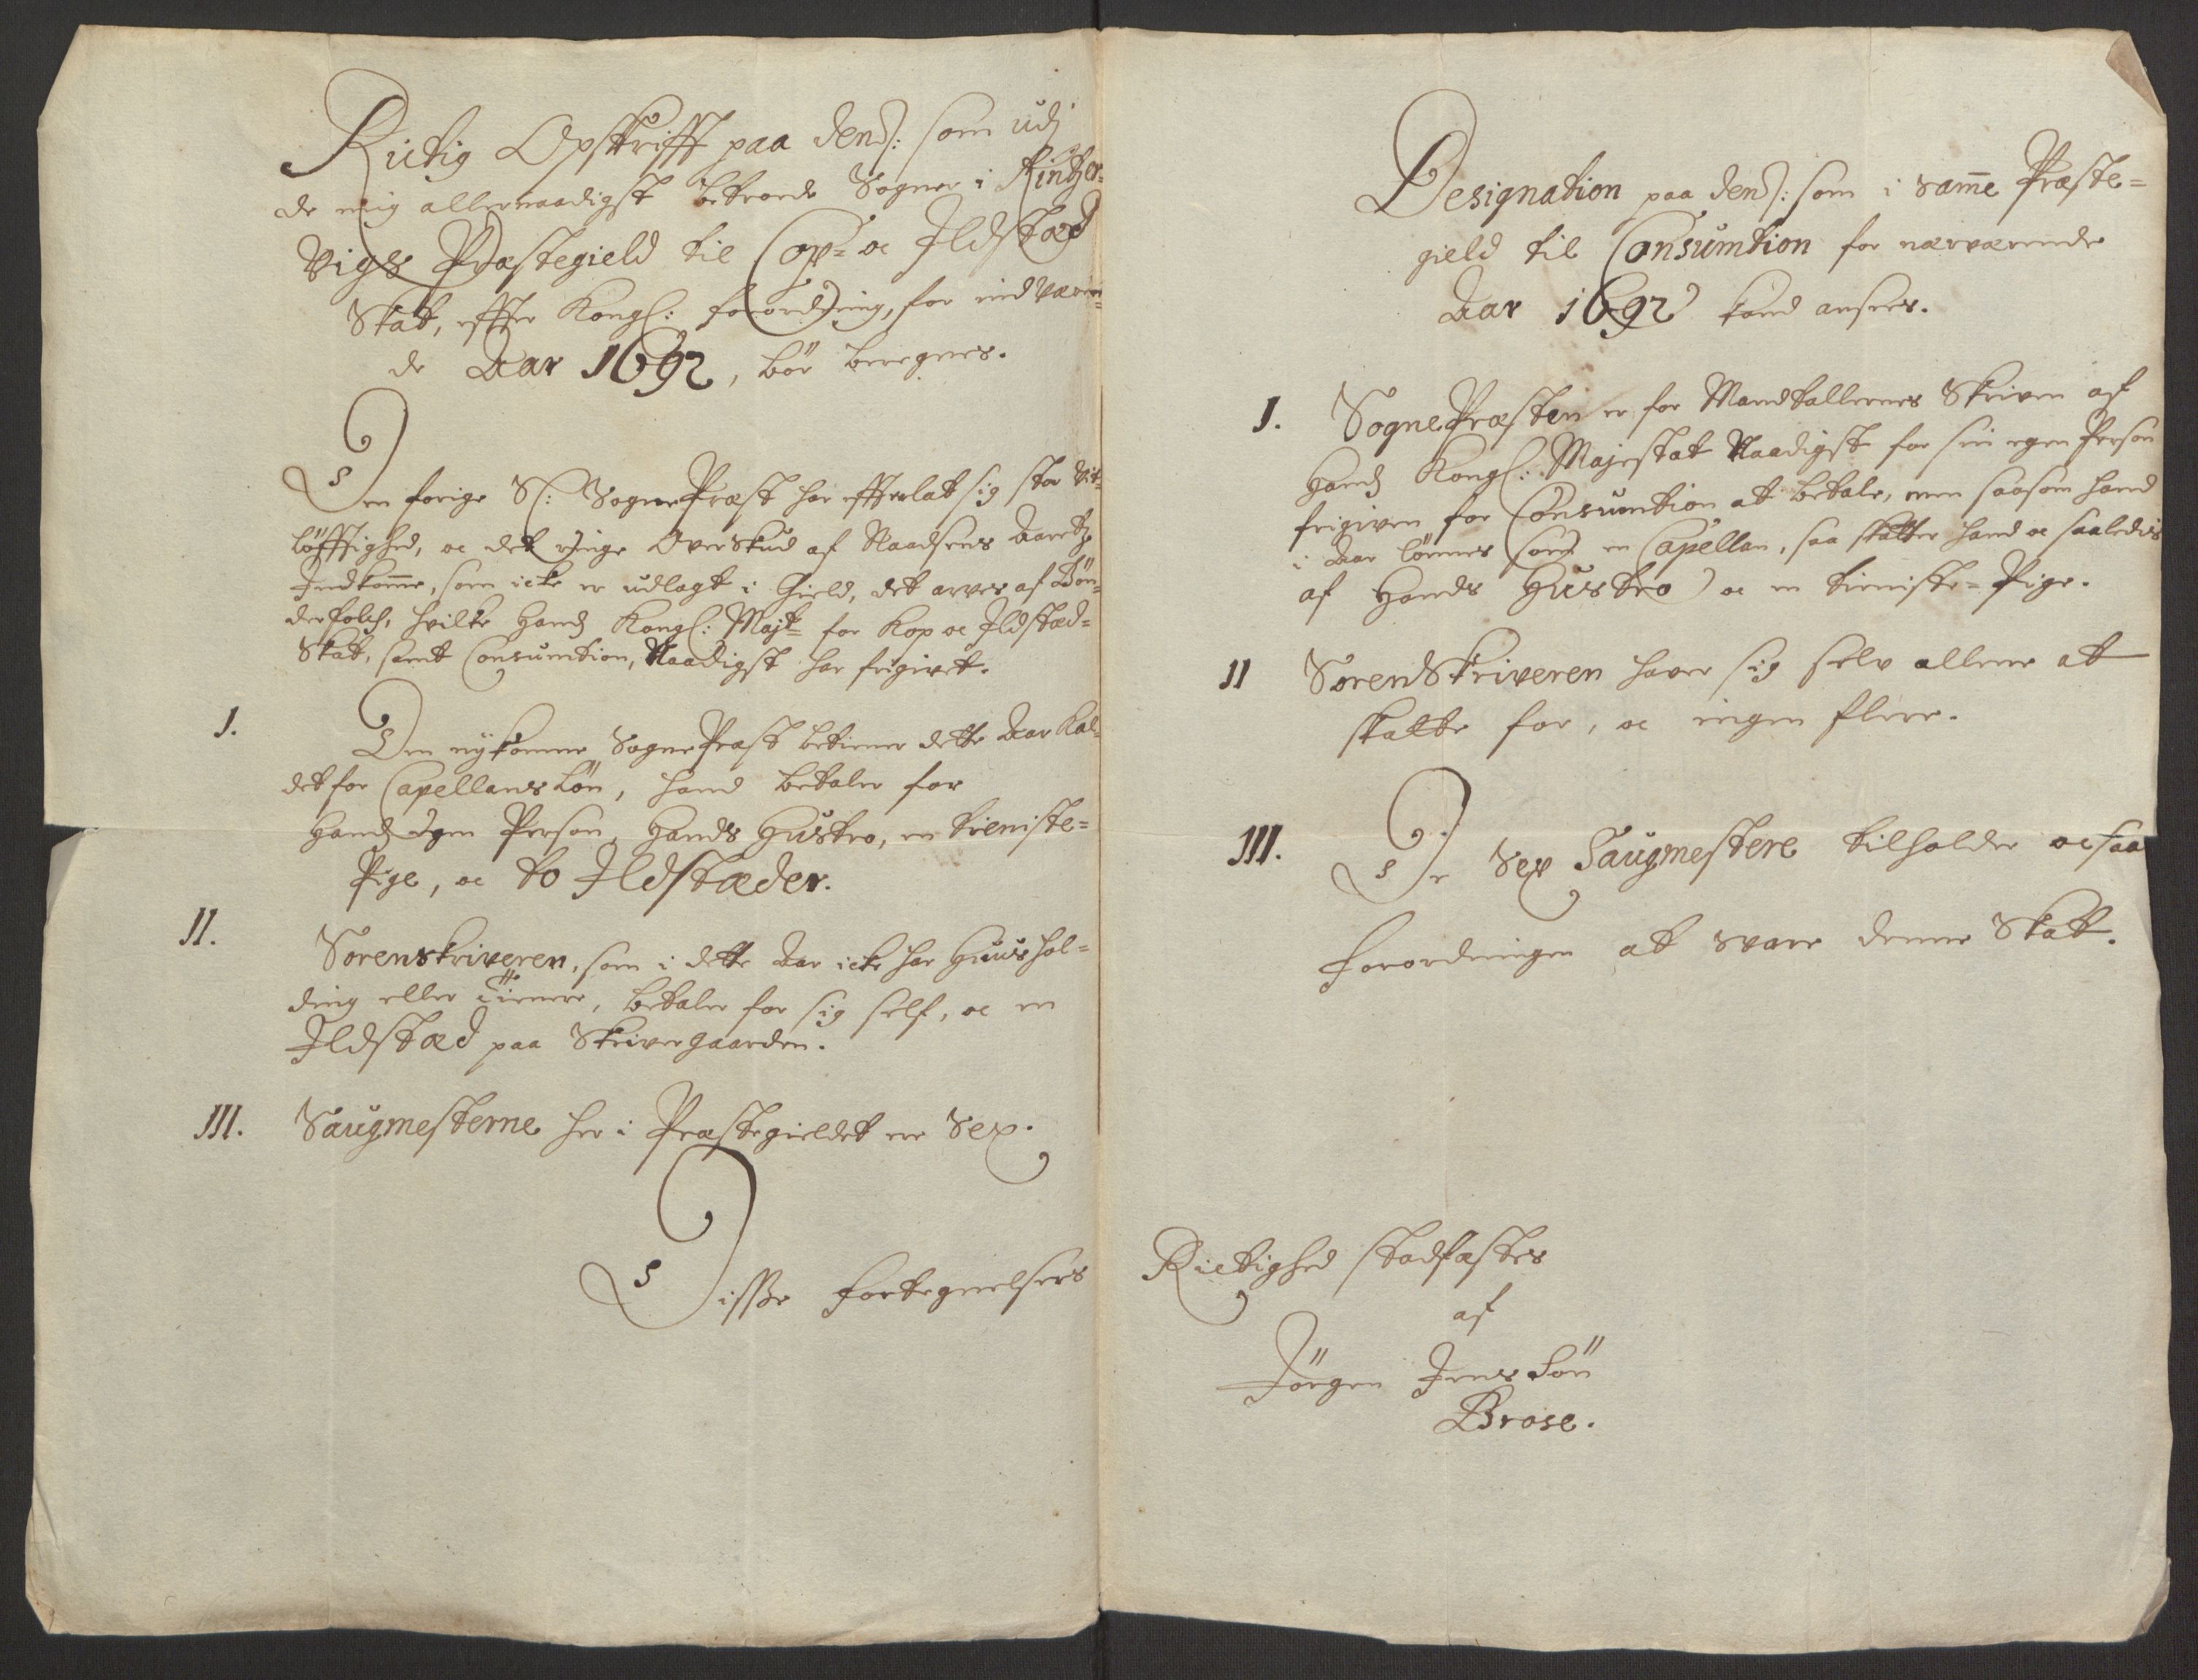 Rictig Opskrifft paa dend: som udj
de mig allernaadigst betroede Sogner i Kinser-
vigs Præstegield til Cop- oc Ildstæd
Skat, effter Kongl: forordning, for indværen-
de Aar 1692, bör beregnes.
Den forige Sl: Sogne Præst har effterlat sig stor Vit-
löfftighed, oc det ringe Overskud af Naadsens Aaretz
Indkom̄e, som icke er udlagt i Gield, det arves af Bön-
derfolch, hvilke Hands Kongl: Majt- for Kop oc Ildstæd-
Skat, samt Consumtion, Naadigst har frigivet.
I. Den nykomne Sogne Præst betiener dette Aar Kal-
det for Capellans Lön, hand betaler for
Hands Egen Person, Hands Hustro, en tieniste-
Pige, oc to Ildstæder.
II. Sorenskriveren, som i dette Aar icke har Huushol-
ding eller Tienere, betaler for sig self, oc en
Ildstæd paa Skrivergaarden.
III. Saugmesterne her i Præstegieldet ere Sex.
Disse Fortegnelsers
Designation paa dend: som i sam̄e Præste-
gield til Consumtion for nærværende
Aar 1692 kand ansees.
I. SognePræsten er for Mandtallernes Skriven af
Hands Kongl: Majestæt Naadigst for sin egen Person
frigiven for Consumtion at betale, men saasom hand
i Aar lönnes som en Capellan, saa skatter hand oc saaledis
af Hands Hustro oc en tieniste-Pige.
II Sorenskriveren haver sig selv allene at
skatte for, oc ingen flere.
III. De Sex Saugmestere tilholder ocsaa
Forordningen at svare denne Skat.
Rictighed stadfæstes
af
Jörgen Jens Sön
Brose.